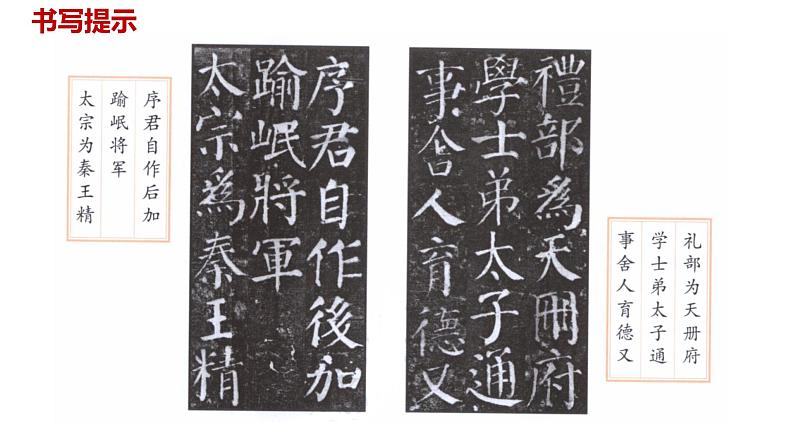 书写提示
禮部為天冊府
學士弟太子通
事舍人育德又
礼部为天册府
学士弟太子通
事舍人育德又
序君自作後加
踰岷將軍
太宗為秦王精
序君自作后加
踰岷将军
太宗为秦王精